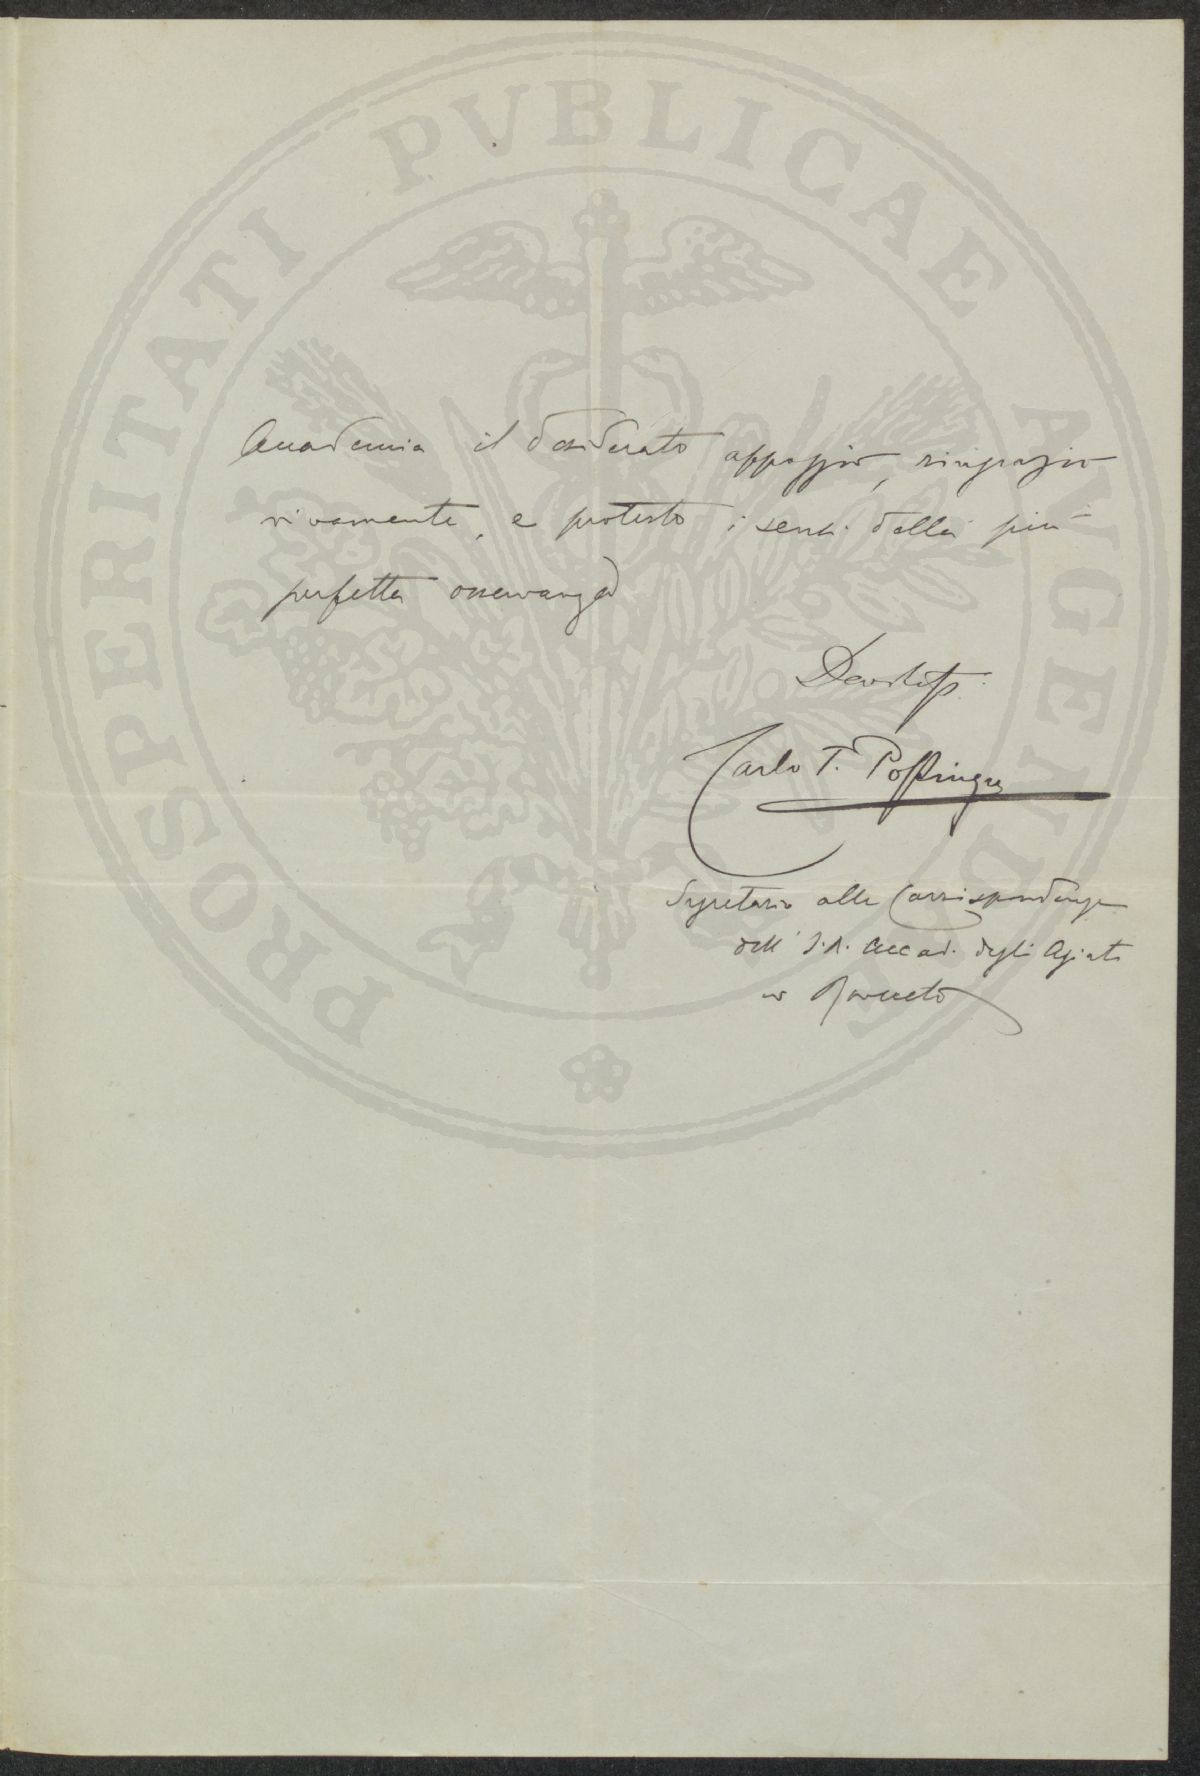 PROSPERITATI PVBLICAE AVGENDAE
Accademia il desiderato appoggio, ringrazio
vivamente, e protesto i sensi della più
perfetta osservanza
Carlo T. Postinger
Segretario alle Corrispondenze
dell' I. R. Accad. degli Agiati
in Rovereto